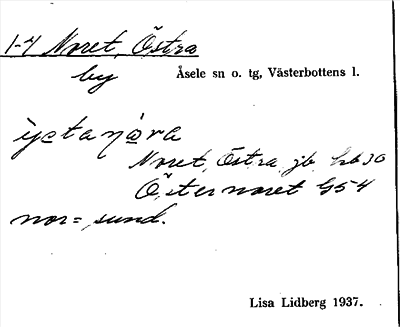 1-4 Noret, Östra
by
Åsele sn o. tg, Västerbottens l.
Noret, Östra jb hb 30
Östernoret G54
nor = sund.
Lisa Lidberg 1937.